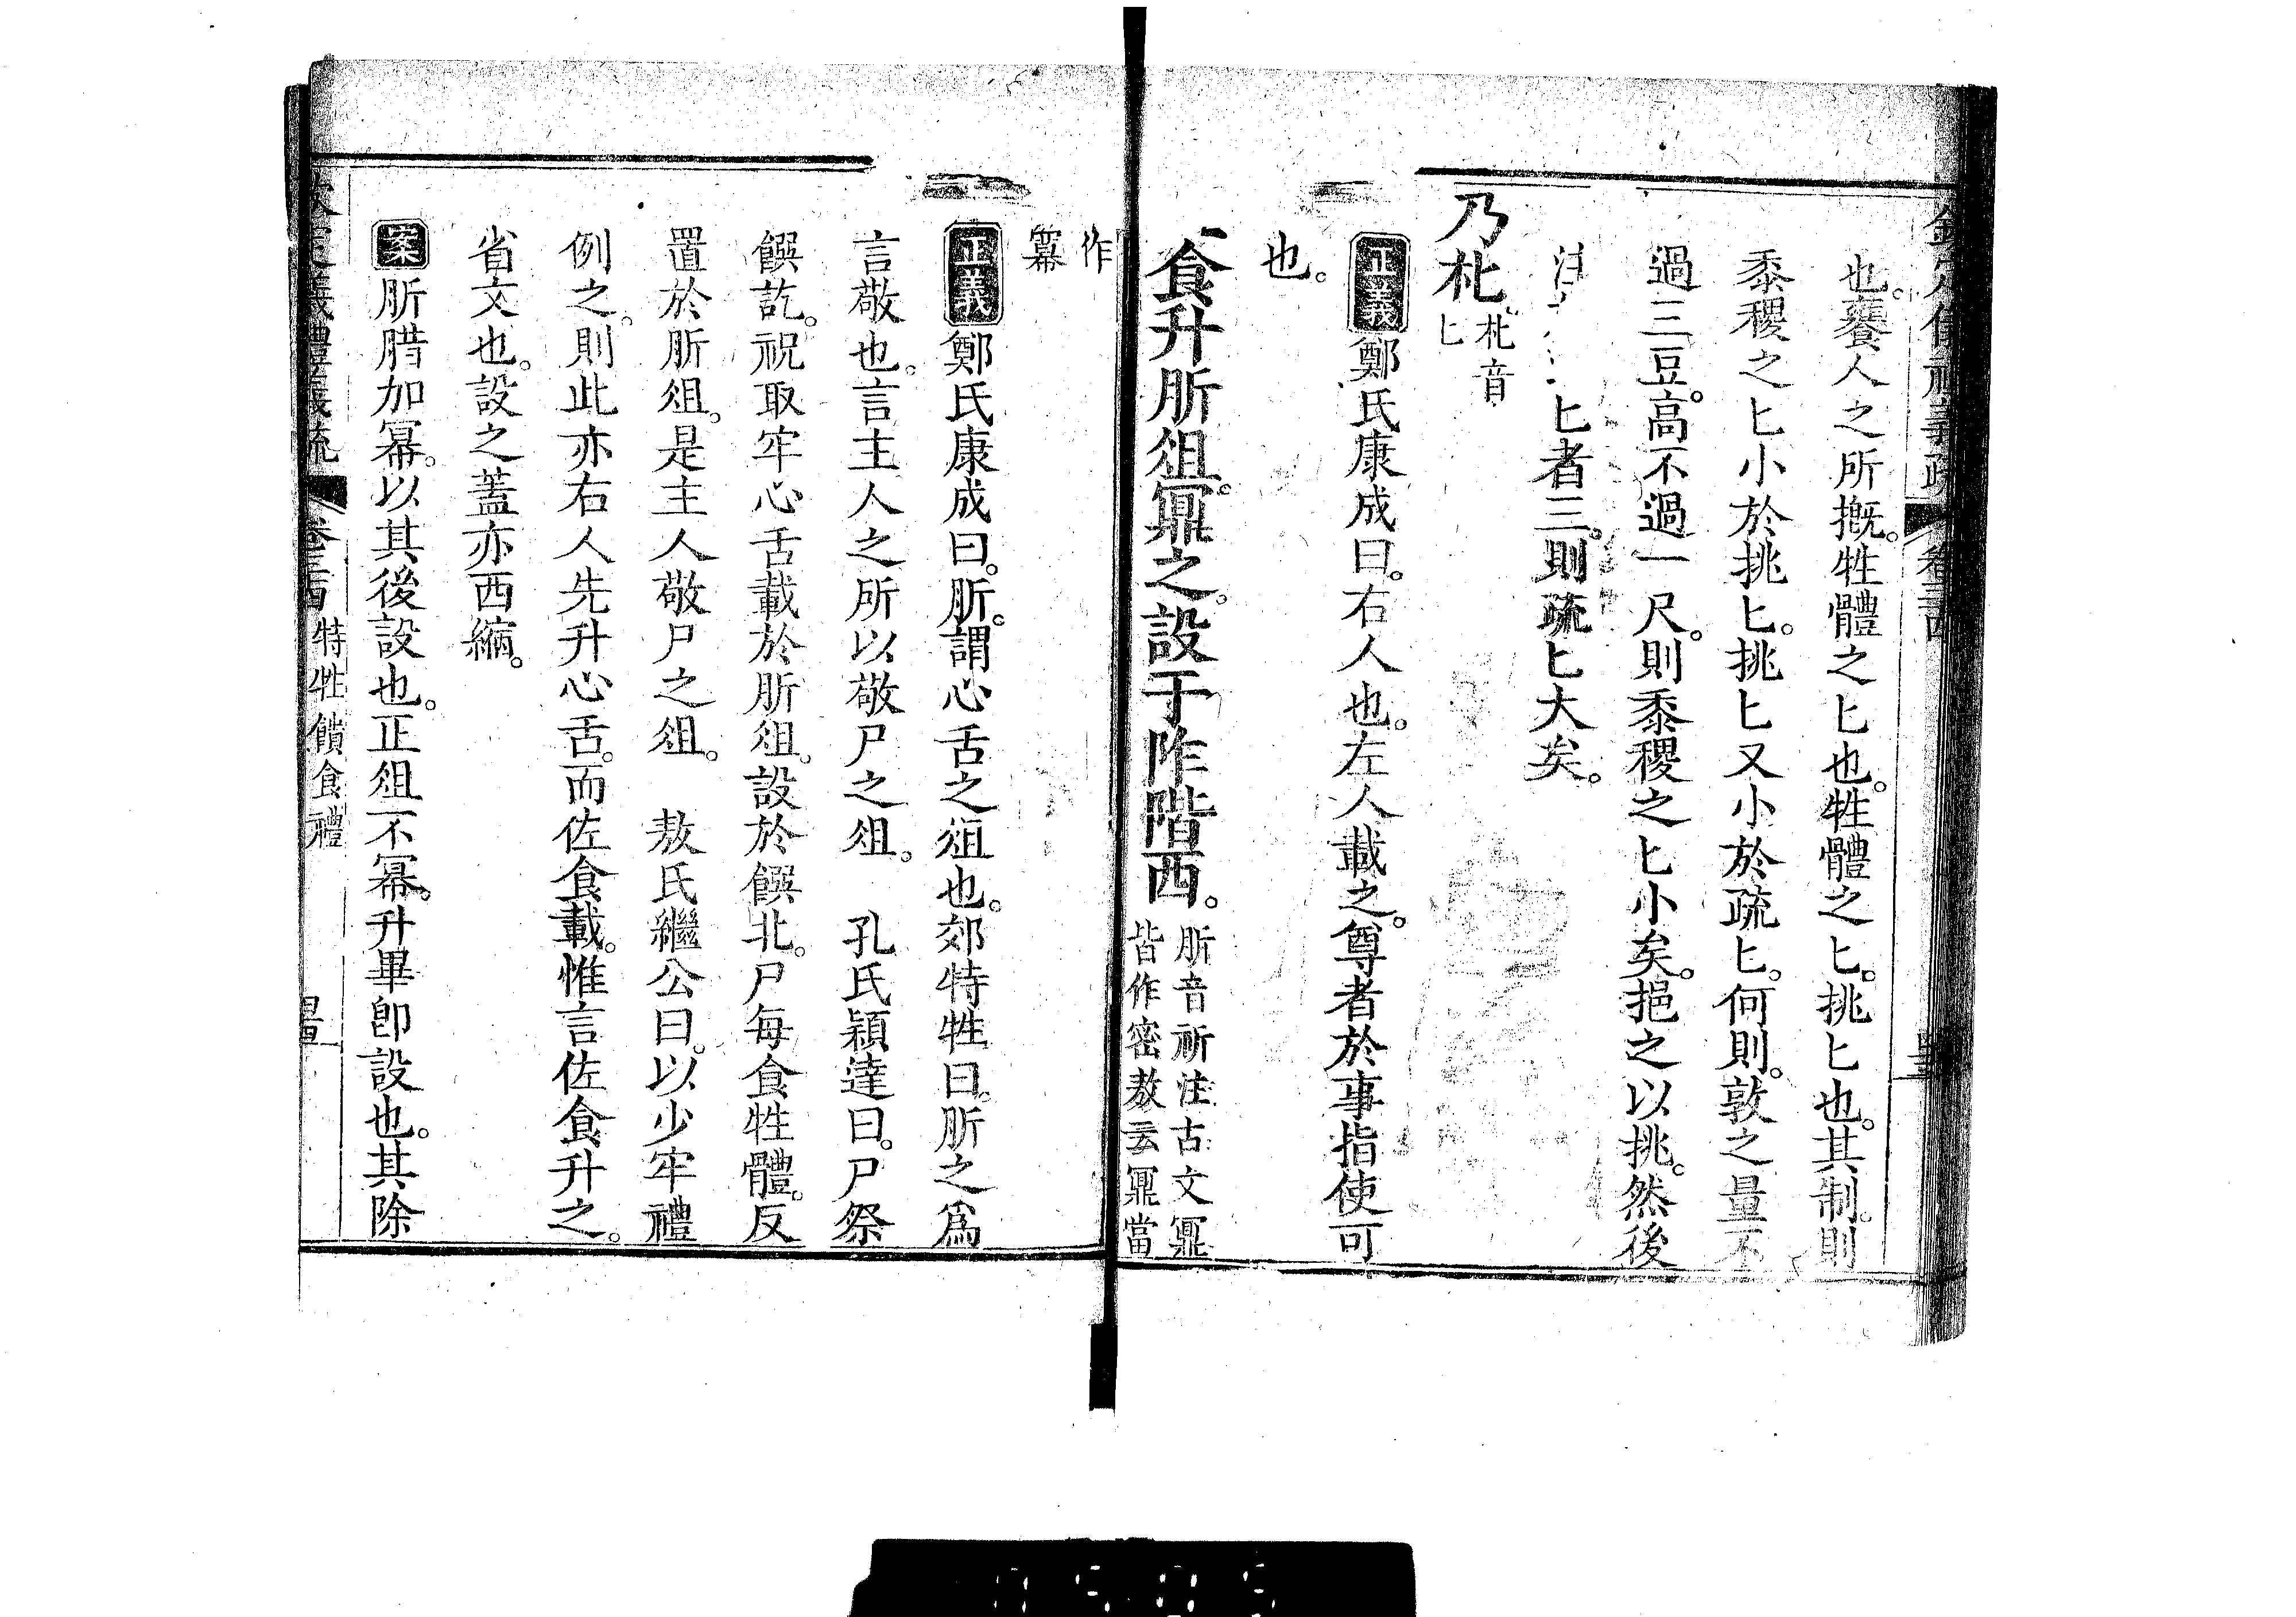 也。饔人之所摡。牲體之匕也。牲體之匕。挑匕也。其制。則
黍稷之匕小於挑匕。挑匕又小於疏匕。何則。敦之量不
過三豆。高不過一尺。則黍稷之匕小矣。挹之以挑。然後
注 匕者三。則疏匕大矣。
乃朼。朼音匕
正義鄭氏康成曰。右人也。左人載之。尊者於事指使可
也。
食升肵俎。鼏之。設于阼階西。肵音祈注古文鼏皆作密敖云鼏當
作冪
正義鄭氏康成曰。肵。謂心舌之俎也。郊特牲曰。肵之爲
言敬也。言主人之所以敬尸之俎。 孔氏穎達曰。尸祭
饌訖。祝取牢心舌載於肵俎。設於饌北。尸每食牲體。反
置於肵俎。是主人敬尸之俎。 敖氏繼公曰。以少牢禮
例之。則此亦右人先升心舌。而佐食載。惟言佐食升之。
省文也。設之蓋亦西縮。
案肵腊加冪。以其後設也。正俎不冪。升畢卽設也。其除
儀禮義疏 卷 特牲饋食禮